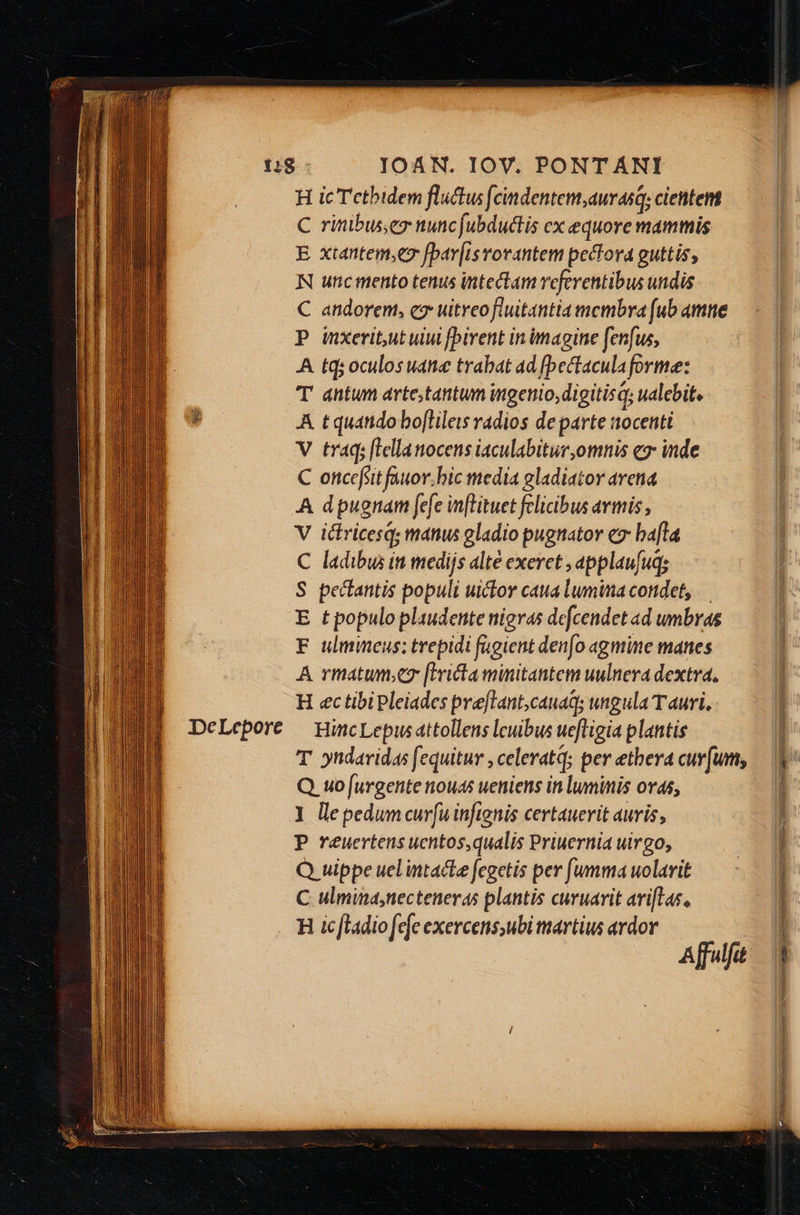 118 IOAN. IOV. PONTANI
H ic Tethidem fluctus ſcindentem, auraſq; cientem
C rinibus, & nunc ſubductis ex æquore mammis
E xtantem, & ſparſis rorantem pectora guttis,
N unc mento tenus intectam referentibus undis
C andorem, & uitreo fluitantia membra ſub amne
P inxerit, ut uiui ſpirent in imagine ſenſus,
A tq; oculos uane trahat ad ſpectacula forme:
T antum arte, tantum ingenio, digitisq; ualebit.
A t quando hoſtileis radios de parte nocenti
V traq; ſtella nocens iaculabitur, omnis & inde
C onceſſit fauor, hic media gladiator arena
A d pugnam ſeſe inſtituet felicibus armis,
V ictricesq; manus gladio pugnator & haſta
C ladibus in medijs alte exeret, applauſuq;
S pectantis populi uictor caua lumina condet,
E t populo plaudente nigras deſcendet ad umbras
F ulmineus: trepidi fugient denſo agmine manes
A rmatum, & ſtricta minitantem uulnera dextra.
H æc tibi Pleiades præſtant, caudaq; ungula Tauri.
De Lepore Hinc Lepus attollens leuibus ueſtigia plantis
T yndaridas ſequitur, celeratq; per æthera curſum,
Q uo ſurgente nouas ueniens in luminis oras,
I lle pedum curſu inſignis certauerit auris,
P ræuertens uentos, qualis Priuernia uirgo,
Q uippe uel intactæ ſegetis per ſumma uolarit
C ulmina, nec teneras plantis curuarit ariſtas.
H ic ſtadio ſeſe exercens, ubi martius ardor
Affulſit